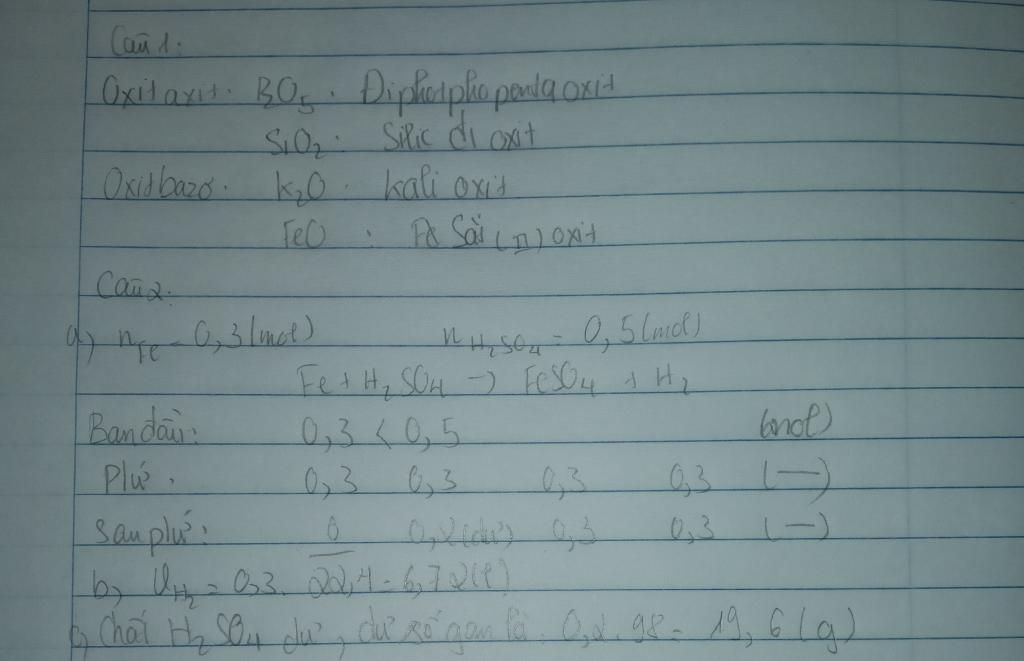 Câu 1:
Oxit axit: P2O5: Điphotpho pentaoxit
SiO2: Silic đi oxit
Oxit bazơ: K2O: Kali oxit
FeO: Sắt (II) oxit
Câu 2:
a) nFe = 0,3 (mol) nH2SO4 = 0,5 (mol)
Fe + H2SO4 → FeSO4 + H2
Ban đầu: 0,3 < 0,5 (mol)
P/ứ: 0,3 0,3 0,3 0,3 (—)
Sau p/ứ: 0 0,2 (dư) 0,3 0,3 (—)
b, VH2 = 0,3. 22,4 = 6,72 (l)
c, Chất H2SO4 dư, dư số gam là: 0,2. 98 = 19,6 (g)